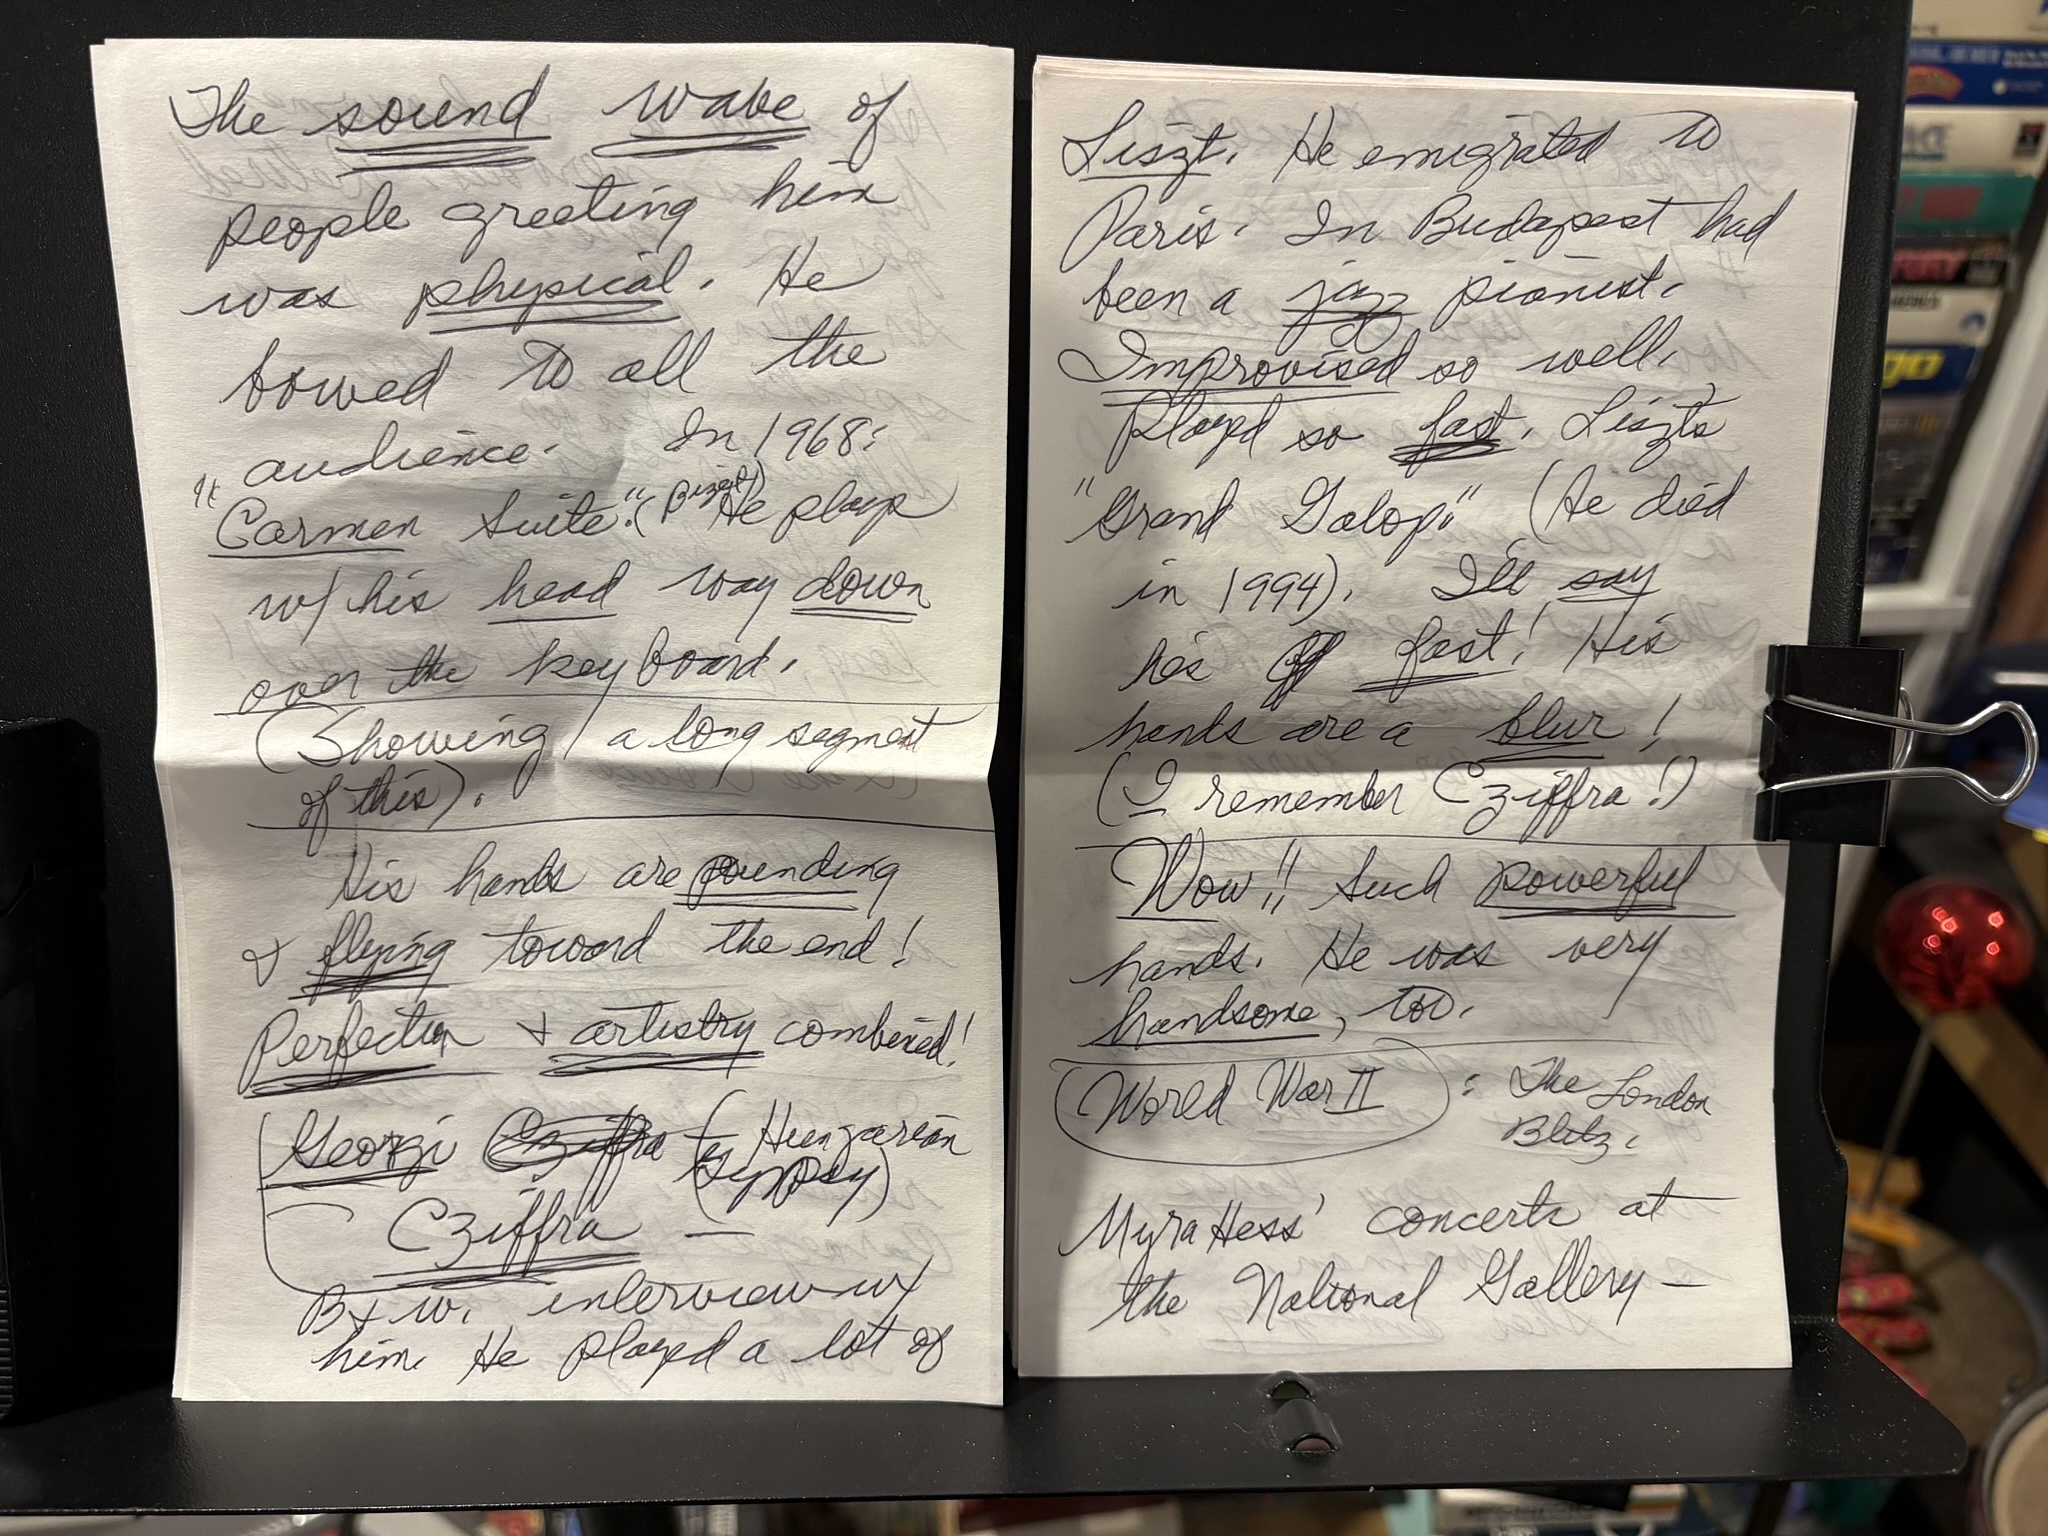 The sound wave of
people greeting him
was physical. He
bowed to all the
audience. In 1968:
"Carmen Suite". (Bizet) He plays
w/ his head way down
over the keyboard.
(Showing a long segment
of this).
His hands are pounding
& flying toward the end!
Perfection & artistry combined!
Georgi Cziffra (Hungarian
Gypsy)
Cziffra —
B & w. interview w/
him. He played a lot of
Liszt. He emigrated to
Paris. In Budapest had
been a jazz pianist.
Improvised so well.
Played so fast. Liszt's
"Grand Galop." (He died
in 1994). I'll say
he's fast! His
hands are a blur!
(I remember Cziffra!)
Wow!! Such powerful
hands. He was very
handsome, too.
World War II : The London
Blitz.
Myra Hess' concerts at
the National Gallery —